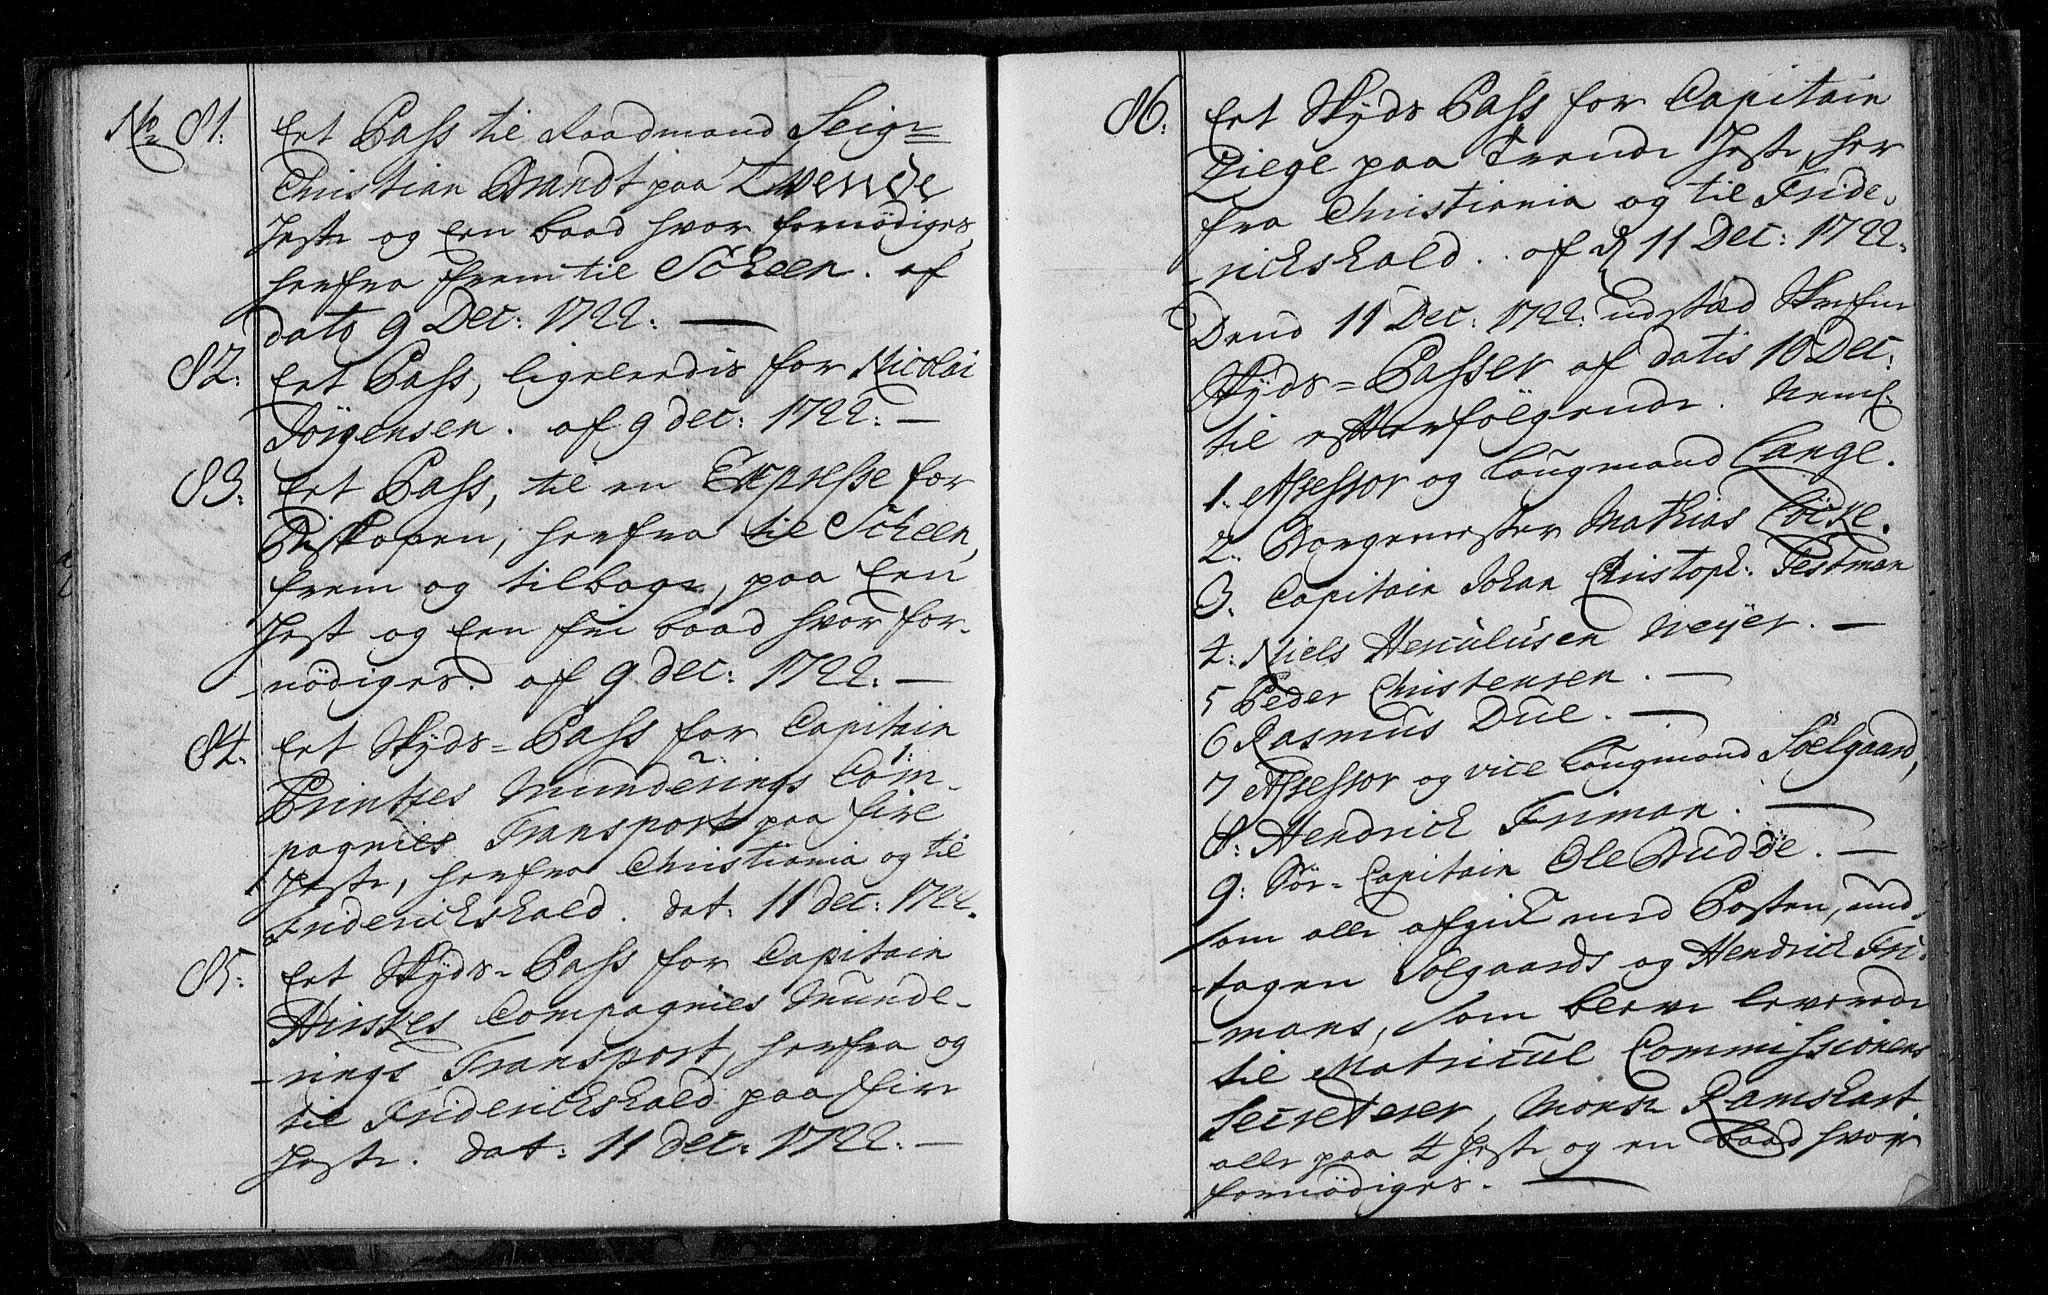 No 81: Ert Pass til Raadmand Seigr
Christian Brandt paa Tvende
Heste og Een baad hvor fornödiges,
herfra frem til Scheen. af
dato 9 Dec: 1722: —
82: Ert Pass, ligeleedis for Nicolai
Jörgensen. af 9 dec: 1722: —
83: Ert Pass, til en Expresse for
Biskopen, herfra til Scheen,
frem og tilbage, paa Een
Hest og Een fri baad hvor for-
nödiges. af 9 dec: 1722: —
84: Ert Skyds-Pass for Capitain
Printzes Munderings Com-
pagnies Transport paa fire
Heste, herfra Christiania og til
Friderickshald. dat: 11 dec: 1722.
85: Ert Skyds-Pass for Capitain
Hirskes Compagnies Munde-
rings Transport, herfra og
til Friderickshald paa fire
Heste. dat: 11 dec: 1722: —
86: Ert Skyds Pass for Capitain
Ziege paa Trende Heste, her
fra Christiania og til Fride-
rickshald. af d 11 Dec: 1722:
Dend 11 Dec: 1722: udstæd
Skyds-Passer af datis 10 Dec:
til efterfölgende. Neml:
1. Assessor og Laugmand Lange.
2. Borgemester Mathias
3. Capitain Johan Christoph: Testman
4: Niels Herculusen Weyer. —
5 Peder Christensen. —
6 Rasmus Due. —
7 Assessor og vice Laugmand Söelgaard,
8: Hendrick Friman. —
9: Söe-Capitain Ole Budde. —
som alle afgick med Posten, und-
tagen Solgaards og Hendrick Fri-
mans, som bleve leverede
til Matricul Commissionens
Secreterer, Monsr Ramshart.
alle paa 4 Heste og en baad hvor
fornödiges. —